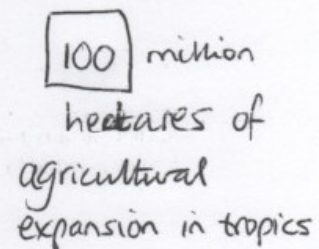 100 million
hectares of
agricultural
expansion in tropics